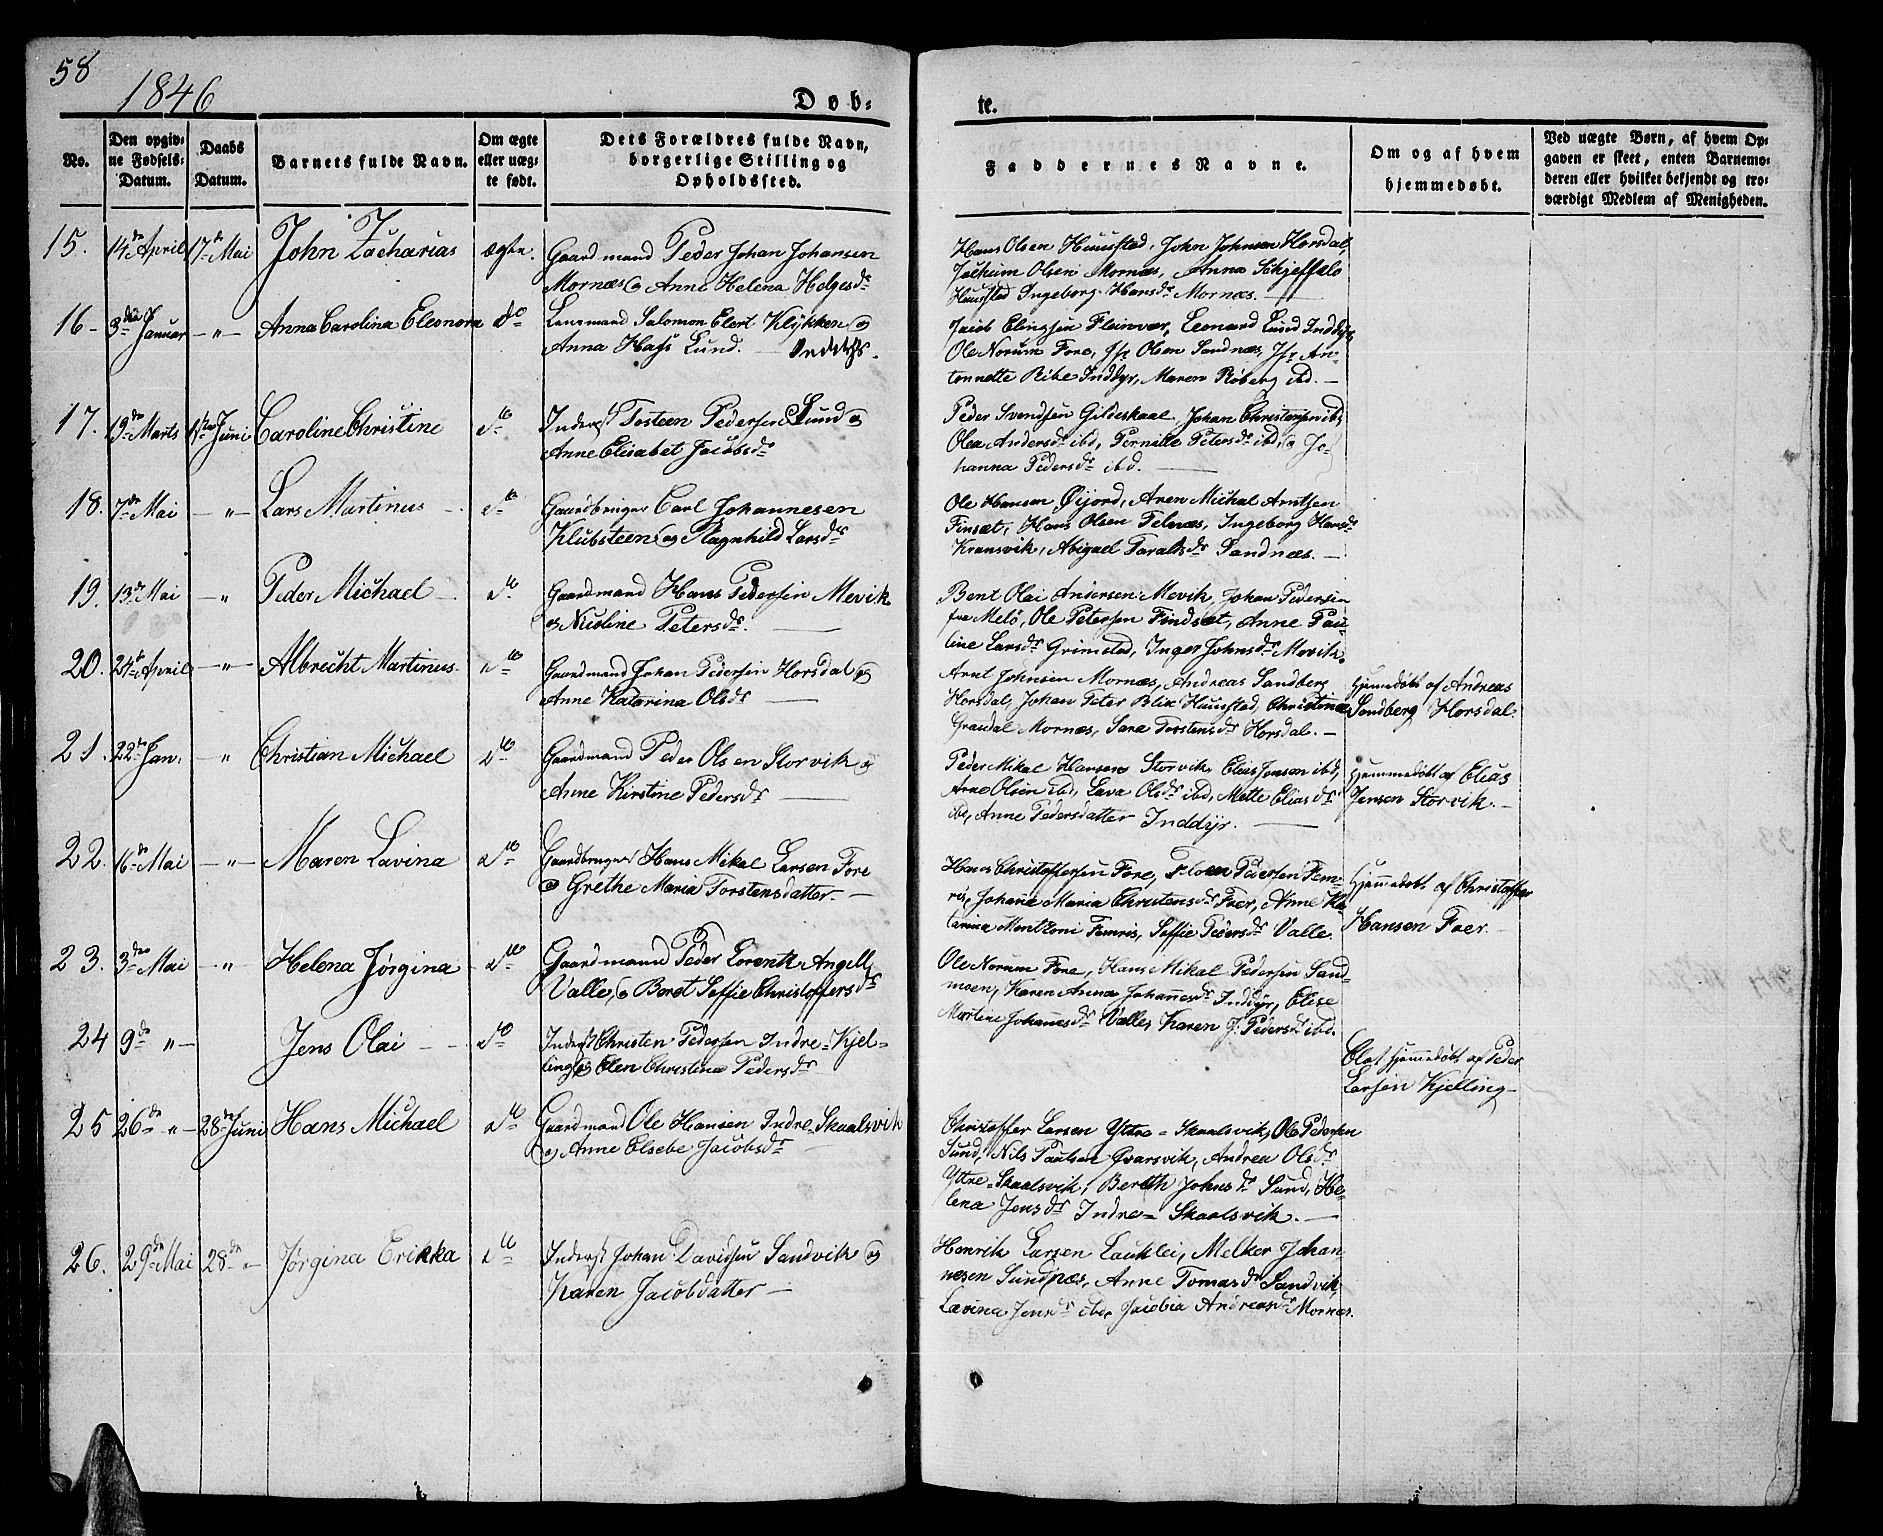 58
1846
Døb-
te.
No.
Den opgiv-
ne Fødsels-
Datum.
Daabs
Datum.
Barnets fulde Navn.
Om ægte
eller uæg-
te født.
Dets Forældres fulde Navn,
borgerlige Stilling og
Opholdssted.
Faddernes Navne.
Om og af hvem
hjemmedøbt.
Ved uægte Børn, af hvem Op-
gaven er skeet, enten Barnemo-
deren eller hvilket bekjendt og tro-
værdigt Medlem af Menigheden.
15. 14de April 17de Mai John Zacharias ægte.
Gaardmand Peder Johan Johansen
Mornæs og Anne Helena Helgesdr
Hans Olsen Huustad, John Johnsen Horsdal,
Joeheim Olsen Mornæs, Anna Schjeffalo
Huustad Ingeborg Hansdr Mornæs.
16 - 3die Januar - " - Anna Carolina Eleonora do
Lensmand Salomon Elert Klykken og
Anna Hass Lund. Inddyr.
Jacob Elingsen Fleinvær, Leonard Lund Inddyr,
Ole Norum Fore, Jfr Olsen Sandnæs, Jfr An-
tonnette Ribe Inddyr, Maren Røberg ibd.
17. 19de Marts 1ste Juni Caroline Christine do
Inderst Tosteen Pedersen Sund og
Anne Elisabet Jacobsdr
Peder Svendsen Gildeskaal, Johan Christensen ibd,
Olea Andersdr ibd, Pernille Petersdr ibd, og Jo-
hanna Pedersdr ibd.
18. 7de Mai - " - Lars Martinus do
Gaardbruger Carl Johannesen
Klubsteen og Ragnhild Larsdr
Ole Hansen Øijord, Aren Michal Arntsen
Finsæt, Hans Olsen Telnæs, Ingeborg Hansdr
Kransvik, Abigael Taraldsdr Sandnæs.
19. 13de Mai - " Peder Michael do
Gaardmand Hans Pedersen Mevik
og Nicoline Petersdr.
Bent Olai Andersen Mevik, Johan Pedersen
fra Melø, Ole Petersen Findsæt, Anne Pau-
line Larsdr Grimstad, Inger Johnsdr Mevik.
20. 24de April - " Albrecht Martinus do
Gaardmand Johan Pedersen Horsdal og
Anne Katarina Olsdr
Arnt Johnsen Mornæs, Andreas Sandberg
Horsdal, Johan Peter Blix Huustad, Christine
Grandal Mornæs, Sara Torstensdr Horsdal.
Hjemmedøbt af Andreas
Sandberg Horsdal.
21. 22de Jan. - " Christian Michael do
Gaardmand Peder Olsen Storvik og
Anne Kirstine Pedersdr
Peder Mikal Hansen Storvik, Elias Jensen ibd,
Arne Olsen ibd, Lava Olsdr ibd, Mette Eliasdr
ibd, Anne Pedersdatter Inddyr.
Hjemmedøbt af Elias
Jensen Storvik.
22. 16de Mai - " - Maren Lavina do
Gaardbruger Hans Mikal Larsen Fore
og Grethe Maria Torstensdatter.
Hans Christoffersen Fore, Pedersen Fem-
ris, Johana Maria Christensdr Foer, Anne Ka-
tarina Mentzoni Femris, Soffie Pedersdr Valle.
Hjemmedøbt af Christoffer
Hansen Foer
23. 3die Mai - " Helena Jørgina do
Gaardmand Peder Lorentz Angell
Valle, og Beret Soffie Christoffersdr
Ole Norum Fore, Hans Mikal Pedersen Sand-
moen, Karen Anna Johannesdr Inddyr, Elise
Martine Johannesdr Valle, Karen J. Pedersdr ibd.
24 9de " Jens Olai do
Inderst Christen Pedersen Indre-Kjel-
ling og Elen Christina Pedersdr
Blot hjemmedøbt af Peder
Larsen Kjelling
25 26de " 28de Juni Hans Michael do
Gaardmand Ole Hansen Indre-Skaalsvik
og Anne Elsebe Jacobsdr
Christoffer Larsen Yttre-Skaalsvik, Ole Pedersen
Sund, Nils Paulsen Qvarsvik, Andrea Olsdr
Yttre-Skaalsvik, Bereth Johnsdr Sund, He-
lena Jensdr Indre-Skaalsvik.
26. 29de Mai 28de " Jørgina Erikka do
Inderst Johan Davidsen Sandvik og
Karen Jacobdatter
Henrik Larsen Lauklei, Melker Johan
nesen Sundnæs, Anne Tomasdr Sandvik,
Lavina Jensdr ibd, Jacobia Andreasdr Mornæs.